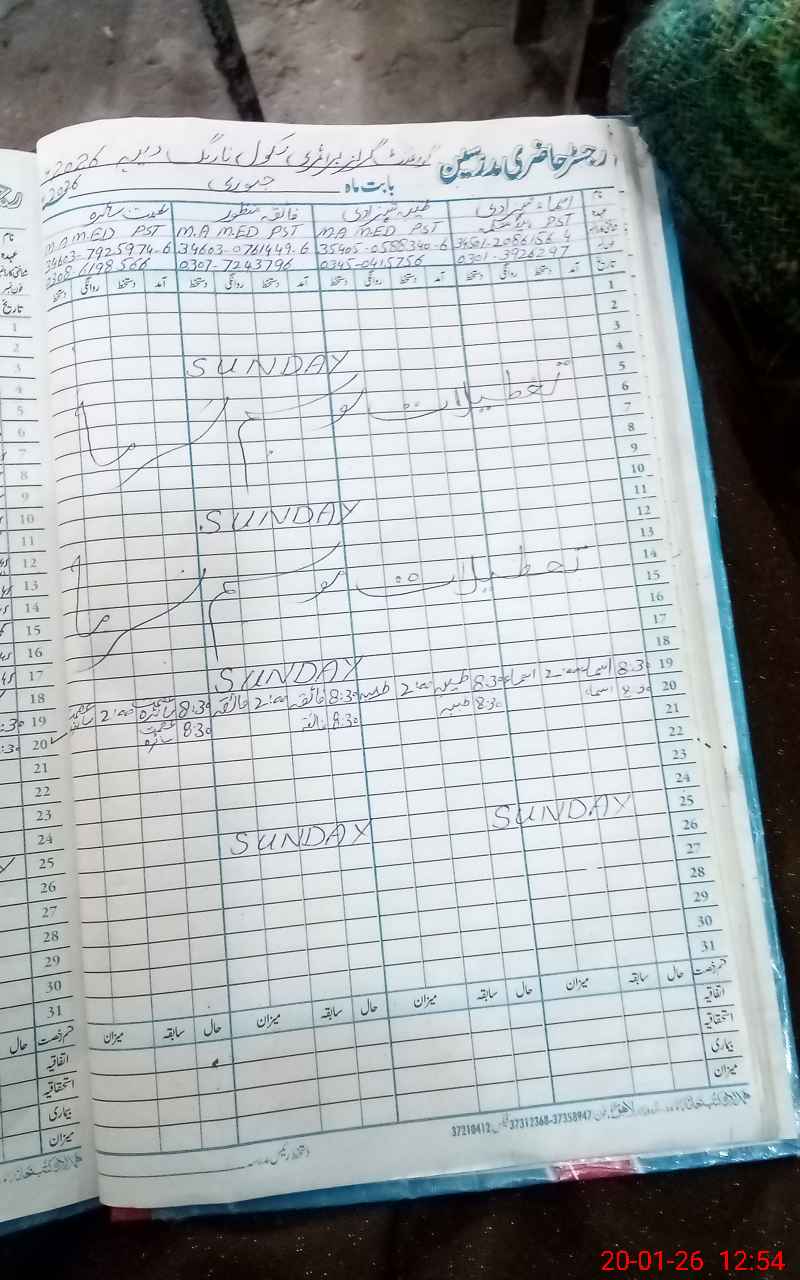 رجسٹر حاضری مدرسین گورنمنٹ گرلز پرائمری سکول نارنگ دیپہ 2026
بابت ماہ جنوری 2026
نام اسماء شہزادی طیبہ شہزادی فائقہ منظور عصمت سائرہ
عہدہ PST M.A M.ED PST M.A M.ED PST M.A M.ED PST
34501-2086156-4 35405-0588340-6 34603-0761449-6 34603-7925974-6
0301-3926297 0345-0415756 0307-7243796 0308-6198566
تاریخ آمد دستخط روانگی دستخط آمد دستخط روانگی دستخط آمد دستخط روانگی دستخط آمد دستخط روانگی دستخط
1
2
3
4 SUNDAY
5
6 تعطیلات موسم سرما
7
8
9
10
11 SUNDAY
12
13
14 تعطیلات موسم سرما
15
16
17
18 SUNDAY
19 8:30 اسماء 2:00 اسماء 8:30 طیبہ 2:00 طیبہ 8:30 فائقہ 2:00 فائقہ 8:30 عصمت سائرہ 2:00 عصمت سائرہ
20 8:30 اسماء 8:30 طیبہ 8:30 فائقہ 8:30 عصمت سائرہ
21
22
23
24
25 SUNDAY SUNDAY
26
27
28
29
30
31
قسم رخصت حال سابقہ میزان حال سابقہ میزان حال سابقہ میزان حال سابقہ میزان
اتفاقیہ
استحقاقیہ
بیماری
میزان
37210412 37312368-37358947
دستخط رئیس مدرسہ
20-01-26 12:54